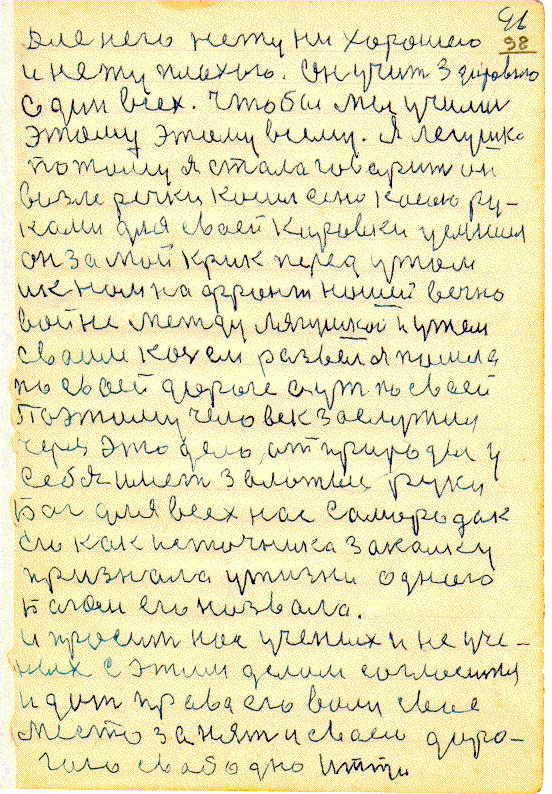 96
98
Для него нету ни хорошего
и нету плахого. Он учит здоровью
один всех. Чтобы мы учили
этому этому всему. Я легушка
потому я стала говарит он
возле речки косил сено касою ру-
ками для своей Коровки
он за мой крик перед ужом
на фронт нашей вечно
войне между лягушкой и ужем
своим развел я пошла
по своей дороге а уж по своей
Поэтому человек заслужил
через это дело, от природы у
себя имет заложил руку
Бог для всех нас самородак
его как источника закалку
признала у жизни однего
Багом его назвала.
и просит нас ученых и не уче-
ных с этим делом согласится
и дат права его воли свое
место занят и своею доро-
гою свабодно итти